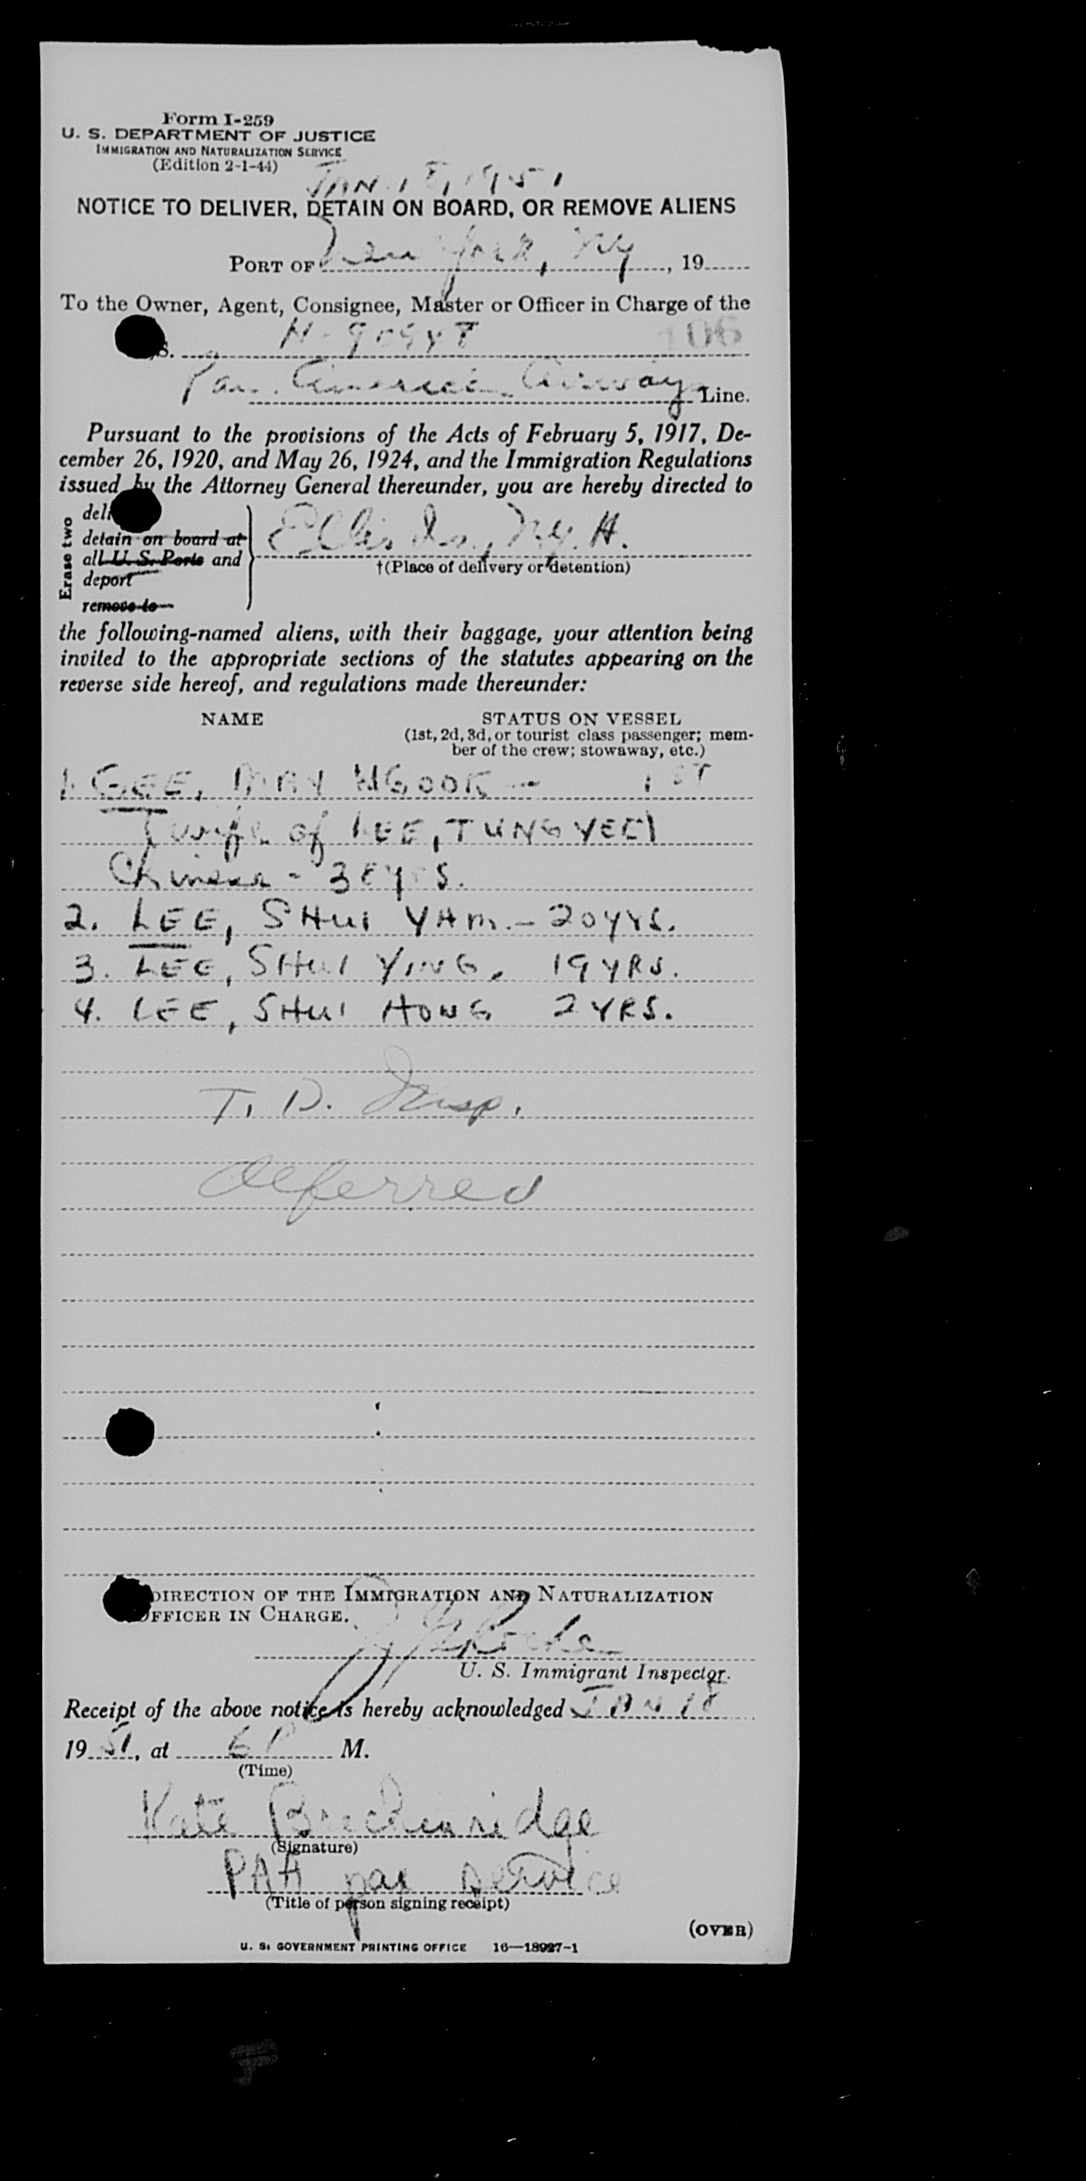 Form I-259
U. S. DEPARTMENT OF JUSTICE
IMMIGRATION AND NATURALIZATION SERVICE
(Edition 2-1-44)
JAN. 18, 1951
NOTICE TO DELIVER, DETAIN ON BOARD, OR REMOVE ALIENS
PORT OF New York, NY, 19
To the Owner, Agent, Consignee, Master or Officer in Charge of the
S. 106
Pan America Airways Line.
Pursuant to the provisions of the Acts of February 5, 1917, De-
cember 26, 1920, and May 26, 1924, and the Immigration Regulations
issued by the Attorney General thereunder, you are hereby directed to
Erase two
deli
detain on board at Ellis Is., N.Y.H.
all U. S. Ports and †(Place of delivery or detention)
deport
remove to
the following-named aliens, with their baggage, your attention being
invited to the appropriate sections of the statutes appearing on the
reverse side hereof, and regulations made thereunder:
NAME STATUS ON VESSEL
(1st, 2d, 3d, or tourist class passenger; mem-
ber of the crew; stowaway, etc.)
1. GEE, MAY NGOOK - 1ST
(wife of LEE, TUNG YEE)
Chinese - 38 yrs.
2. LEE, SHUI YAM. - 20 YRS.
3. LEE, SHUI YING, 19 YRS.
4. LEE, SHUI HONG 2 YRS.
T. D. Insp.
deferred
DIRECTION OF THE IMMIGRATION AND NATURALIZATION
OFFICER IN CHARGE.
U. S. Immigrant Inspector.
Receipt of the above notice is hereby acknowledged JAN 18
19 51, at 6 P M.
(Time)
Kate Breckenridge
(Signature)
PAA pas service
(Title of person signing receipt)
(OVER)
U. S. GOVERNMENT PRINTING OFFICE 16—18927-1